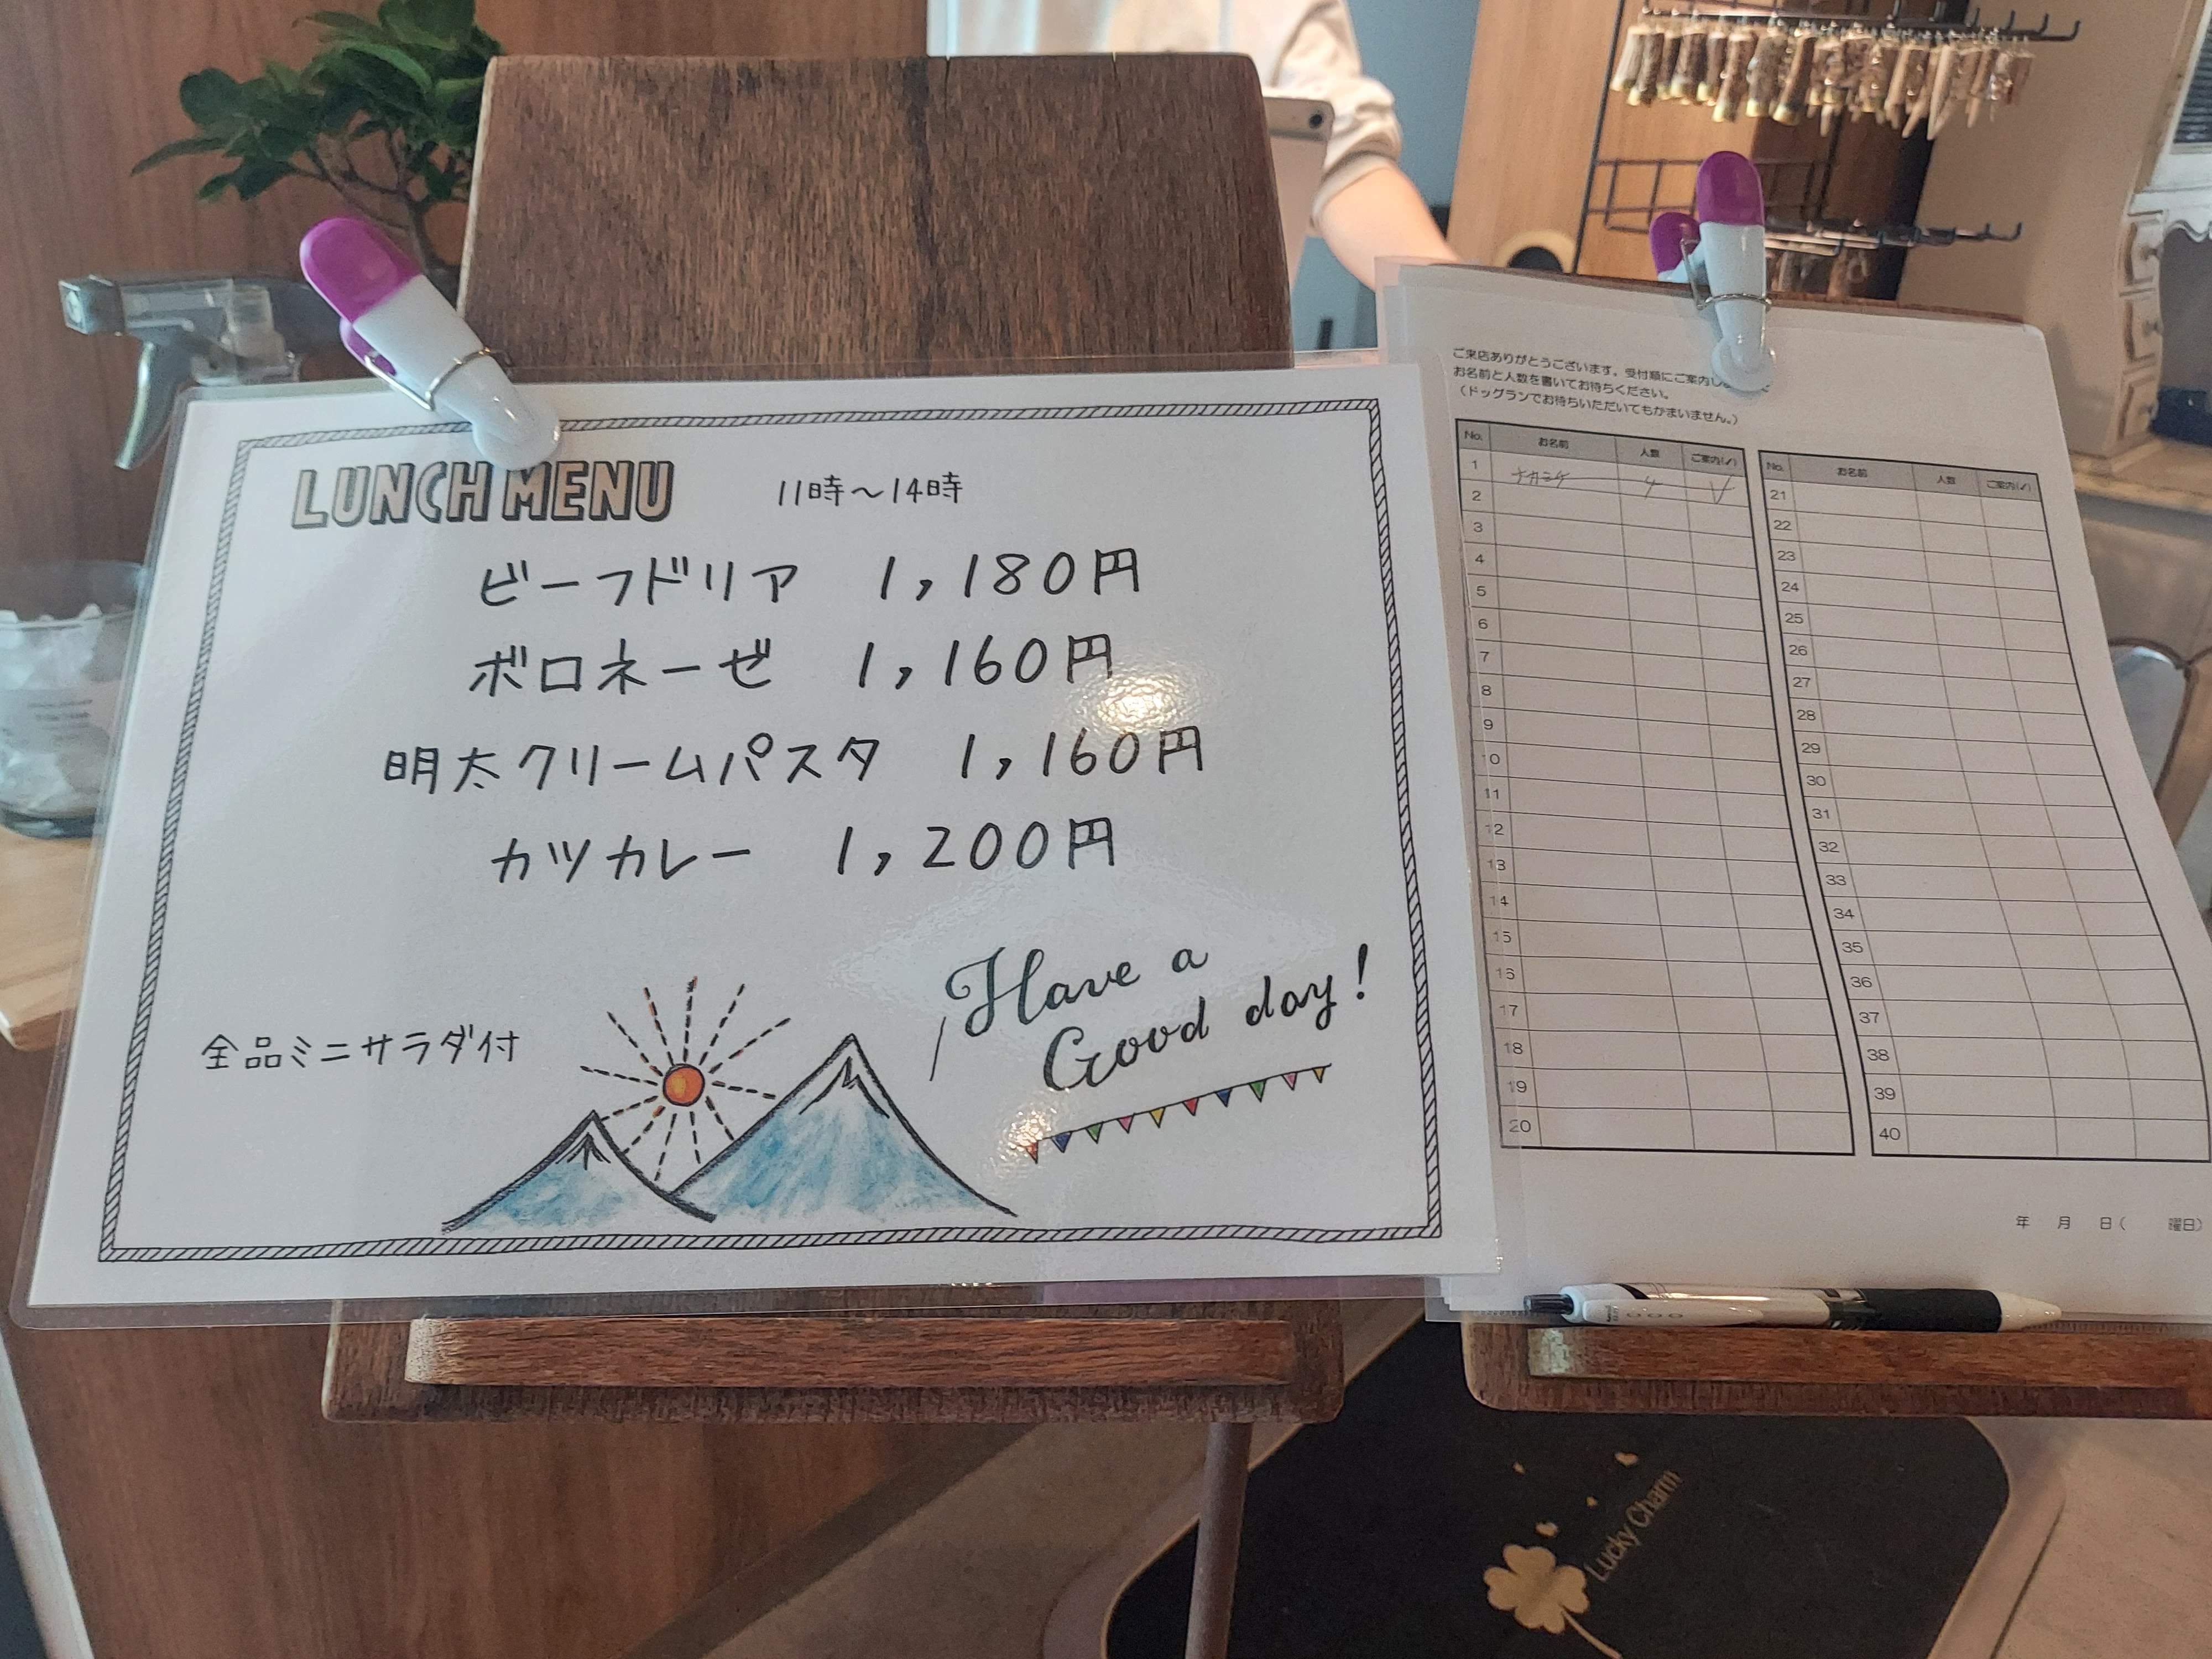 LUNCH MENU 11時～14時
ビーフドリア 1,180円
ボロネーゼ 1,160円
明太クリームパスタ 1,160円
カツカレー 1,200円
全品ミニサラダ付
Have a
Good day!
ご来店ありがとうございます。受付順にご案内し
お名前と人数を書いてお待ちください。
(ドッグランでお待ちいただいてもかまいません。)
No. お名前 人数 ご案内(✓)
1 4 ✓
2
3
4
5
6
7
8
9
10
11
12
13
14
15
16
17
18
19
20
No. お名前 人数 ご案内(✓)
21
22
23
24
25
26
27
28
29
30
31
32
33
34
35
36
37
38
39
40
年 月 日( 曜日)
Lucky Charm